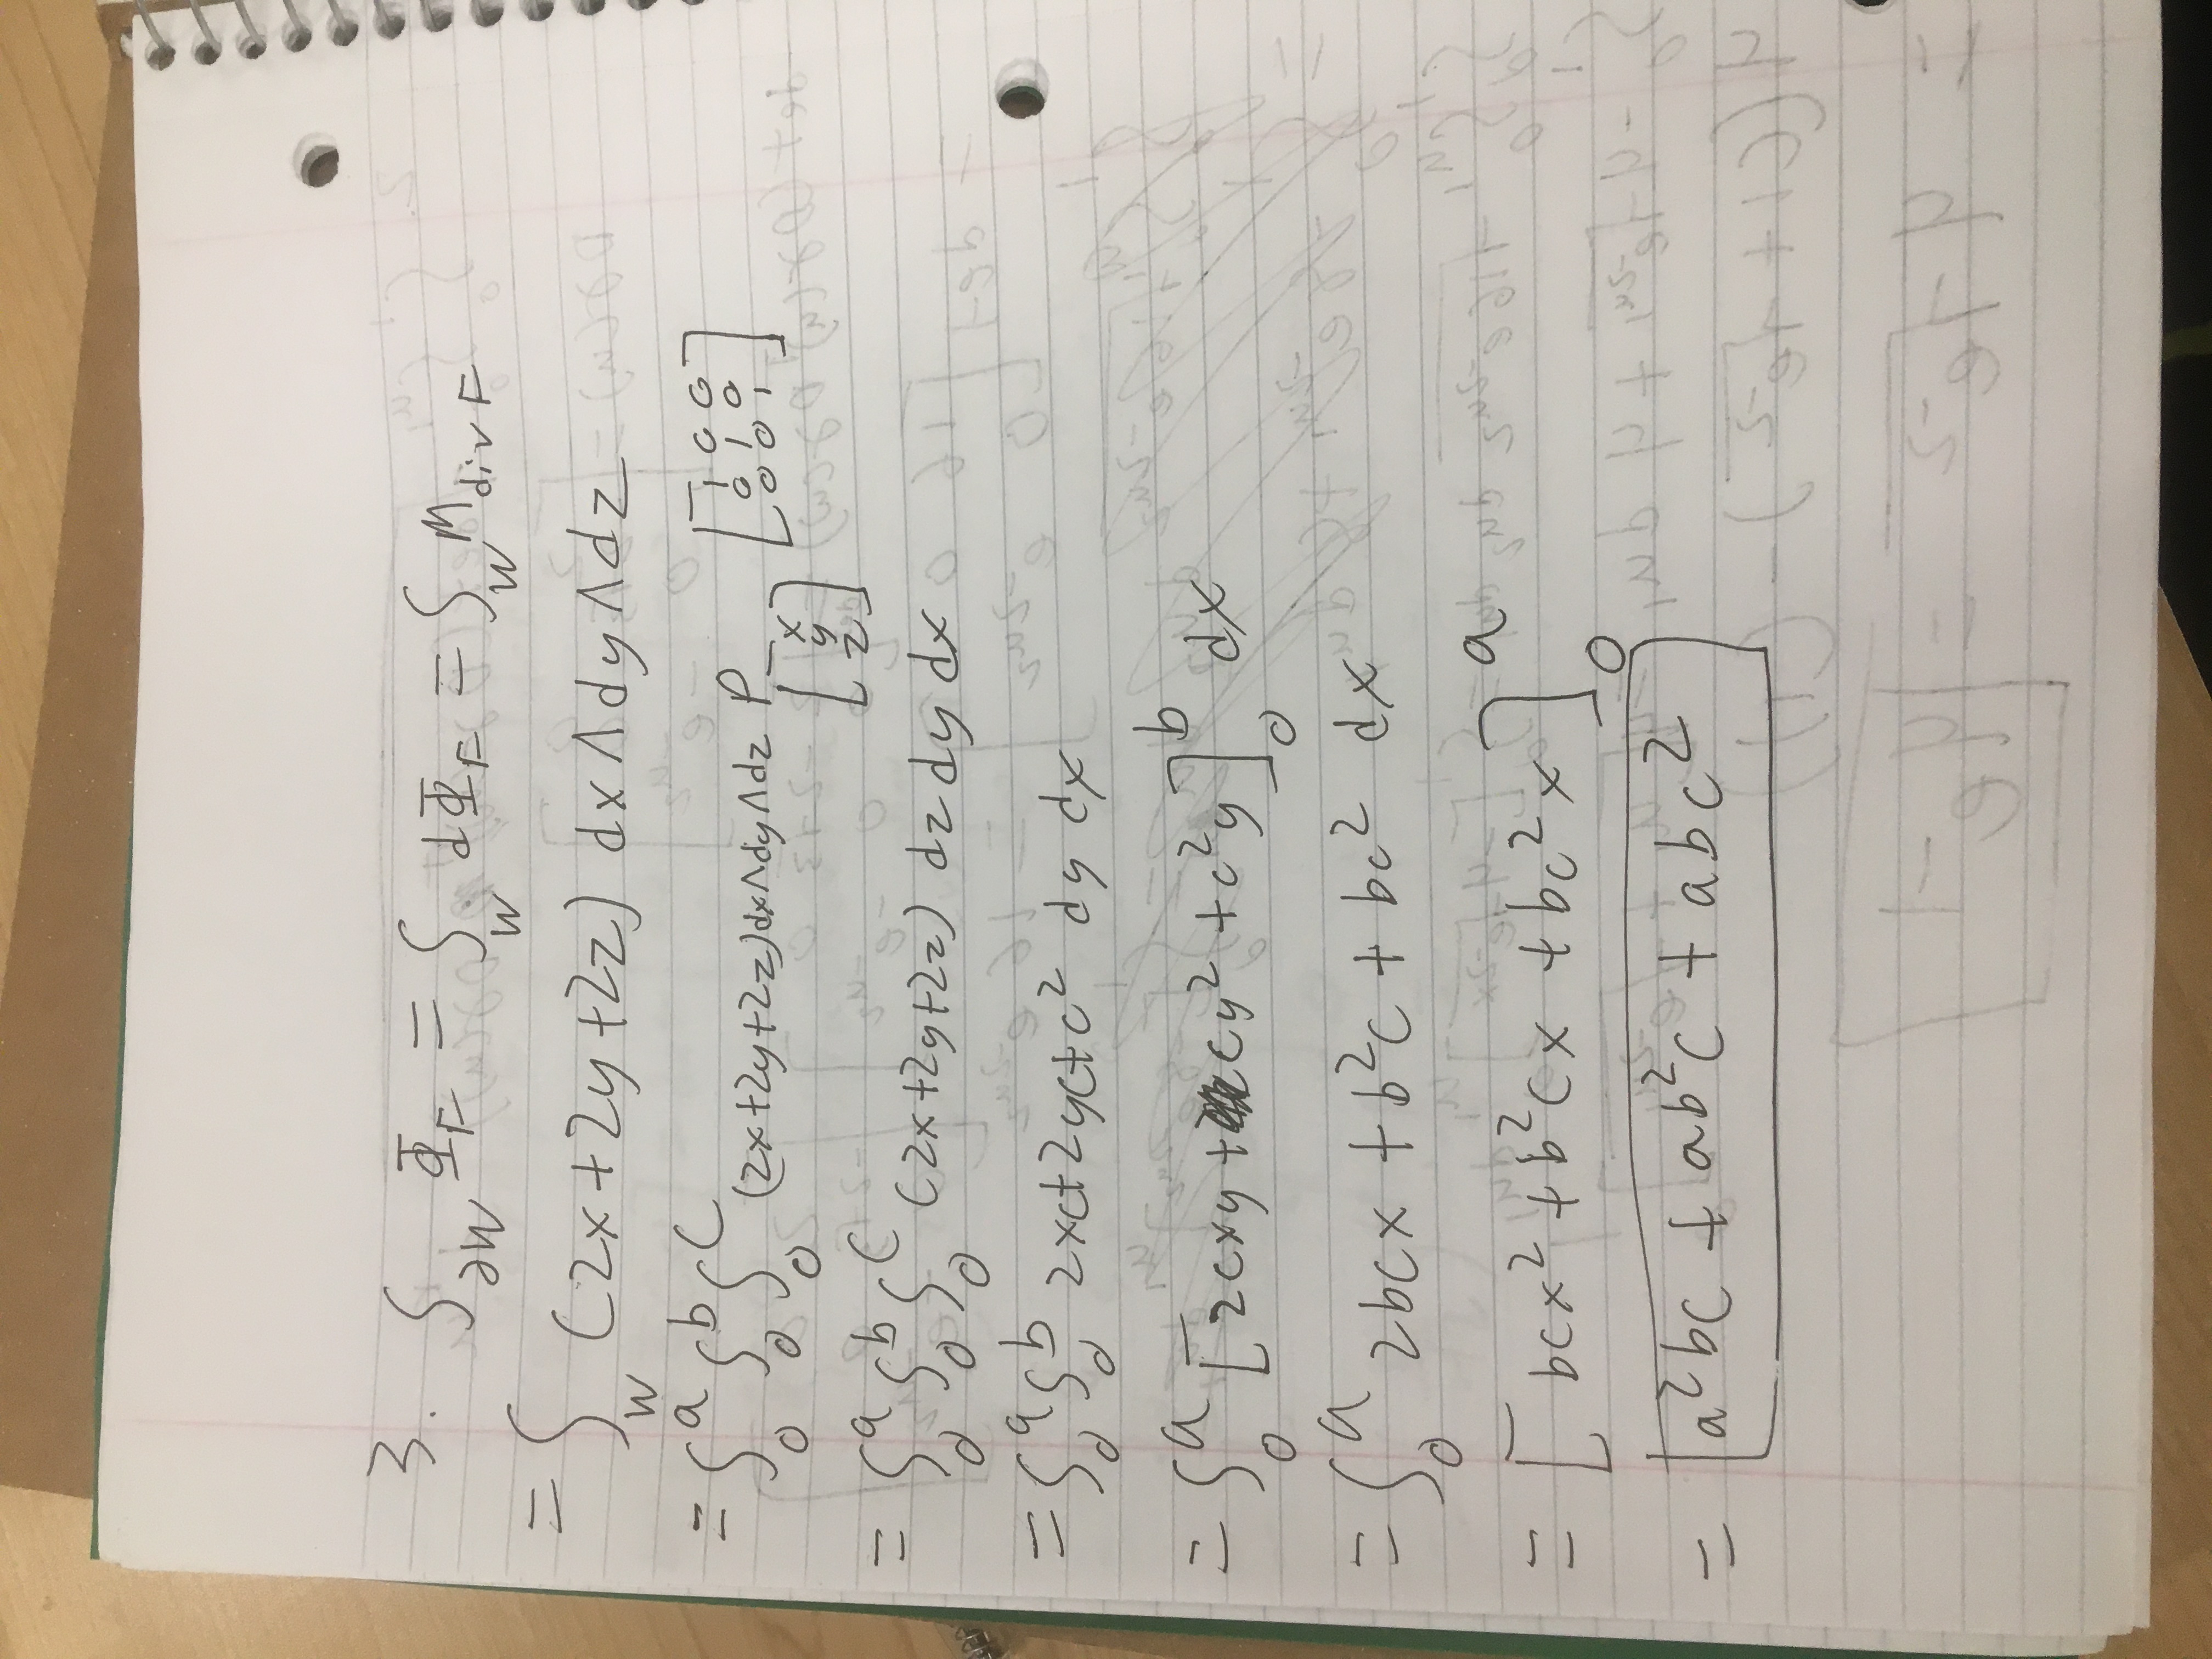 3. ∫_∂W Φ_F = ∫_W dΦ_F = ∫_W M_div F
= ∫_W (2x+2y+2z) dx∧dy∧dz
= ∫_0^a ∫_0^b ∫_0^c (2x+2y+2z)dx∧dy∧dz P_[x y z] [1 0 0 0 1 0 0 0 1]
= ∫_0^a ∫_0^b ∫_0^c (2x+2y+2z) dz dy dx
= ∫_0^a ∫_0^b 2xc+2yc+c² dy dx
= ∫_0^a [2cxy + cy² + c²y]_0^b dx
= ∫_0^a 2bcx + b²c + bc² dx
= [bcx² + b²cx + bc²x]_0^a
= a²bc + ab²c + abc²